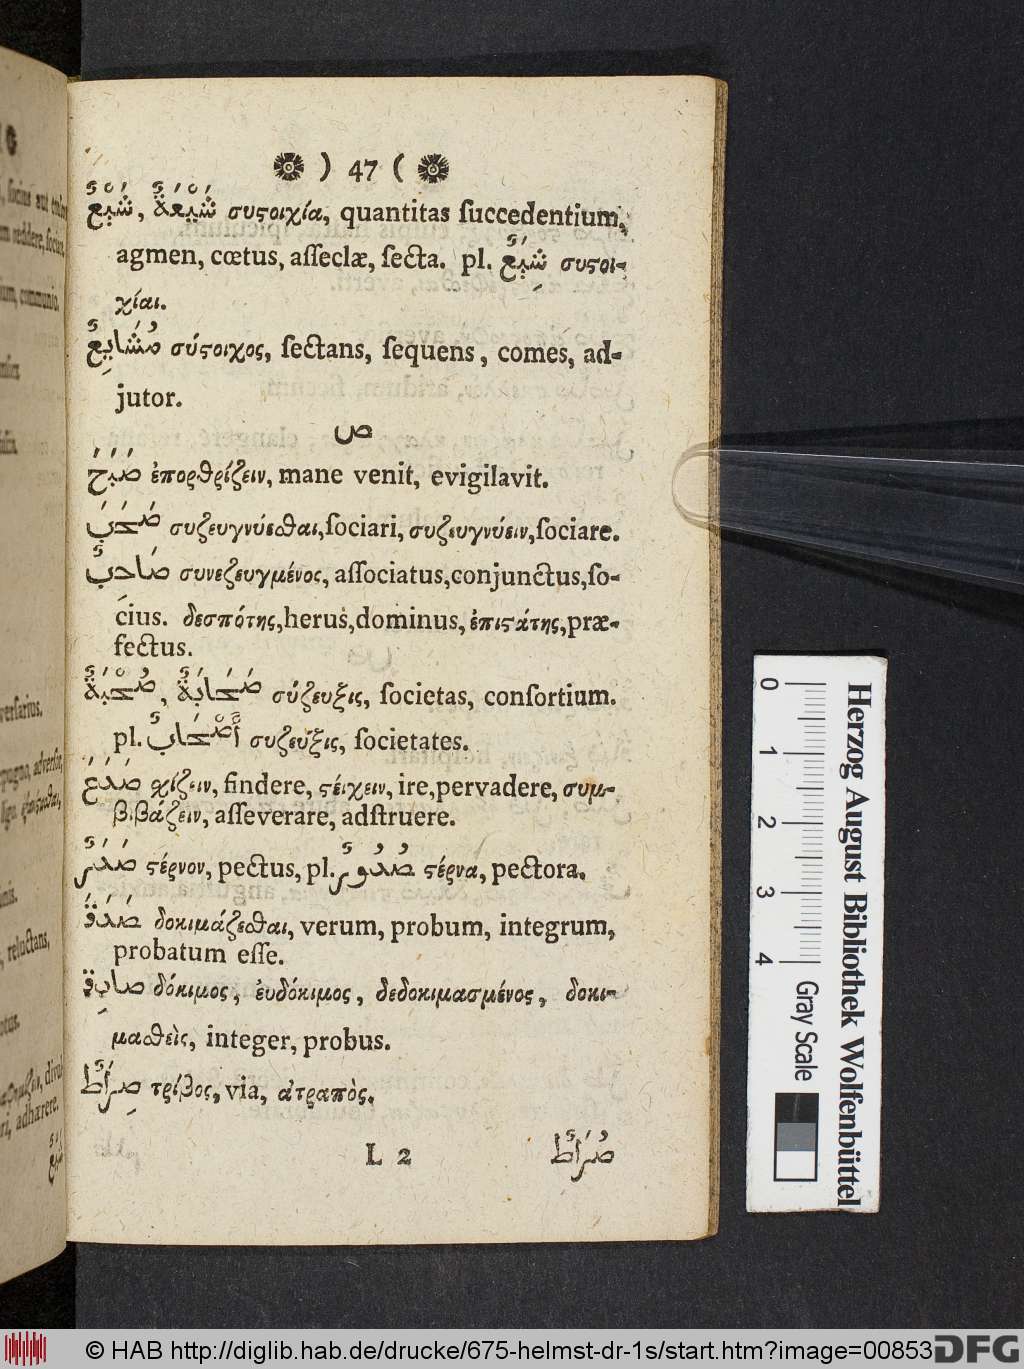 ) 47 (
شَيْعٌ, شَيْعَةٌ συϛοιχία, quantitas ſuccedentium,
agmen, cœtus, aſſeclæ, ſecta. pl. شِيَعٌ συϛοι-
χίαι.
مُشَايِعٌ σύϛοιχος, ſectans, ſequens, comes, ad-
jutor.
ص
صَبَحَ ἐπορθρίζειν, mane venit, evigilavit.
صَحَبَ συζευγνύεσθαι, ſociari, συζευγνύειν, ſociare.
صَاحِبٌ συνεζευγμένος, aſſociatus, conjunctus, ſo-
cius. δεσπότης, herus, dominus, ἐπιϛάτης, præ-
fectus.
صُحْبَةٌ, صَحَابَةٌ σύζευξις, ſocietas, conſortium.
pl. أَصْحَابٌ συζεύξις, ſocietates.
صَدَعَ σχίζειν, findere, ϛείχειν, ire, pervadere, συμ-
βιβάζειν, aſſeverare, adſtruere.
صَدَرٌ ϛέρνον, pectus, pl. صُدُورٌ ϛέρνα, pectora.
صَدَقَ δοκιμάζεσθαι, verum, probum, integrum,
probatum eſſe.
δόκιμος, ἐυδόκιμος, δεδοκιμασμένος, δοκι-
μασθεὶς, integer, probus.
صِرَاطٌ τρίβος, via, ἀτραπὸς.
L 2
صُرَاطٌ
0 1 2 3 4
Gray Scale
Herzog August Bibliothek Wolfenbüttel
© HAB http://diglib.hab.de/drucke/675-helmst-dr-1s/start.htm?image=00853
DFG